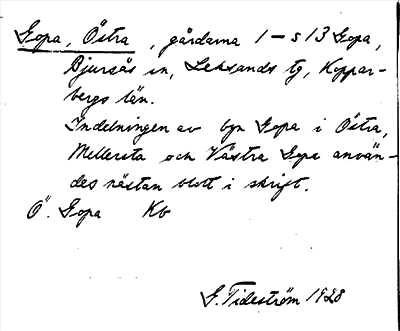 Gopa, Östra, gårdarna 1–s 13 Gopa,
Bjursås sn, Leksands tg, Koppar-
bergs län.
Indelningen av byn Gopa i Östra,
Mellersta och Västra Gopa använ-
des nästan blott i skrift.
Ö. Gopa Kb
G. Tideström 1928